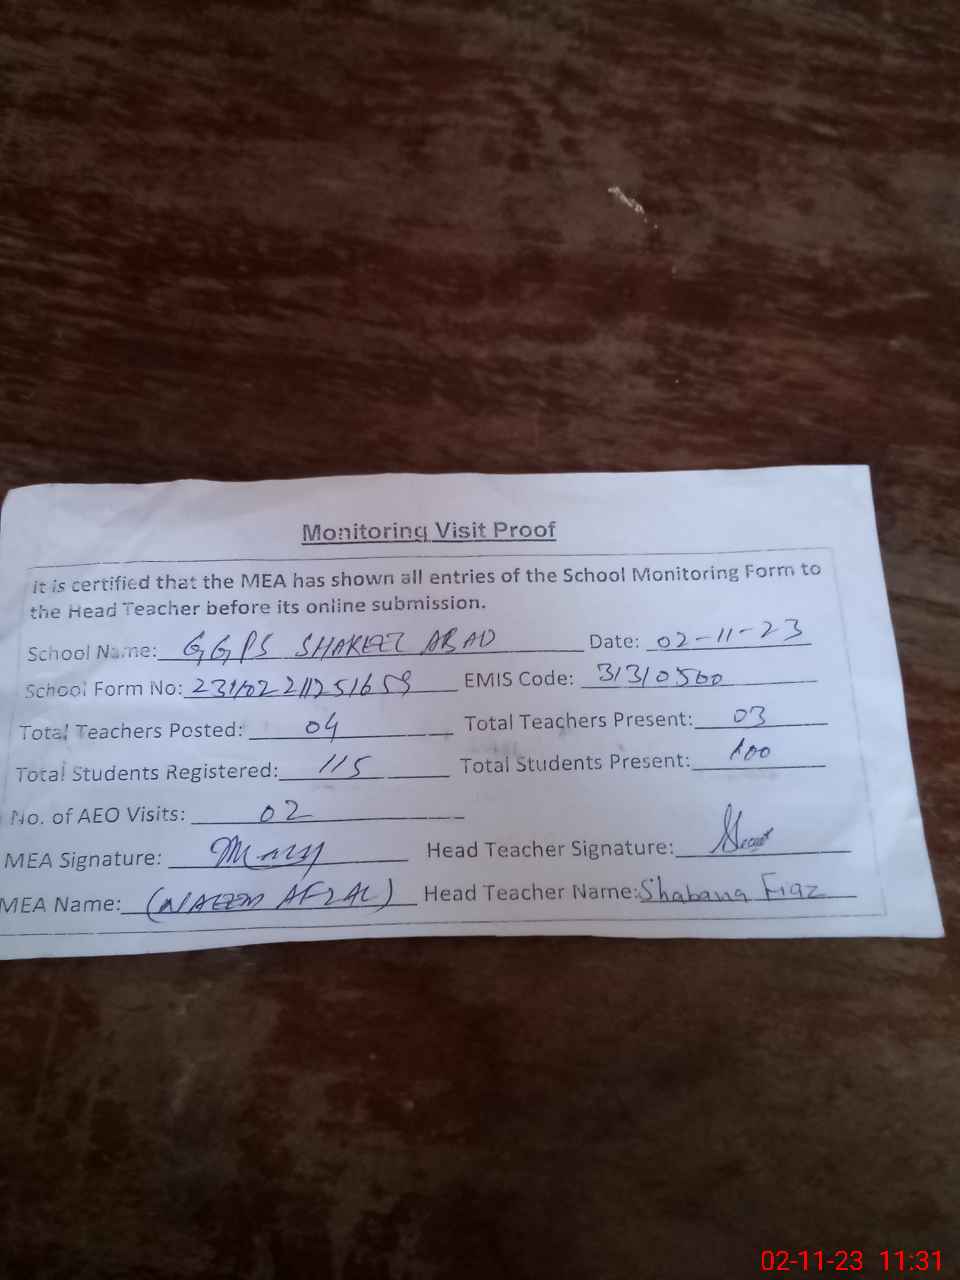 Monitoring Visit Proof
it is certified that the MEA has shown all entries of the School Monitoring Form to
the Head Teacher before its online submission.
School Name: GGPS SHAKEEL ABAD Date: 02-11-23
School Form No: EMIS Code: 31310560
Total Teachers Posted: 04 Total Teachers Present: 03
Total Students Registered: 115 Total Students Present: 100
No. of AEO Visits: 02
MEA Signature: Head Teacher Signature:
MEA Name: (NAEEM AFZAL) Head Teacher Name: Shabana Fiaz
02-11-23 11:31